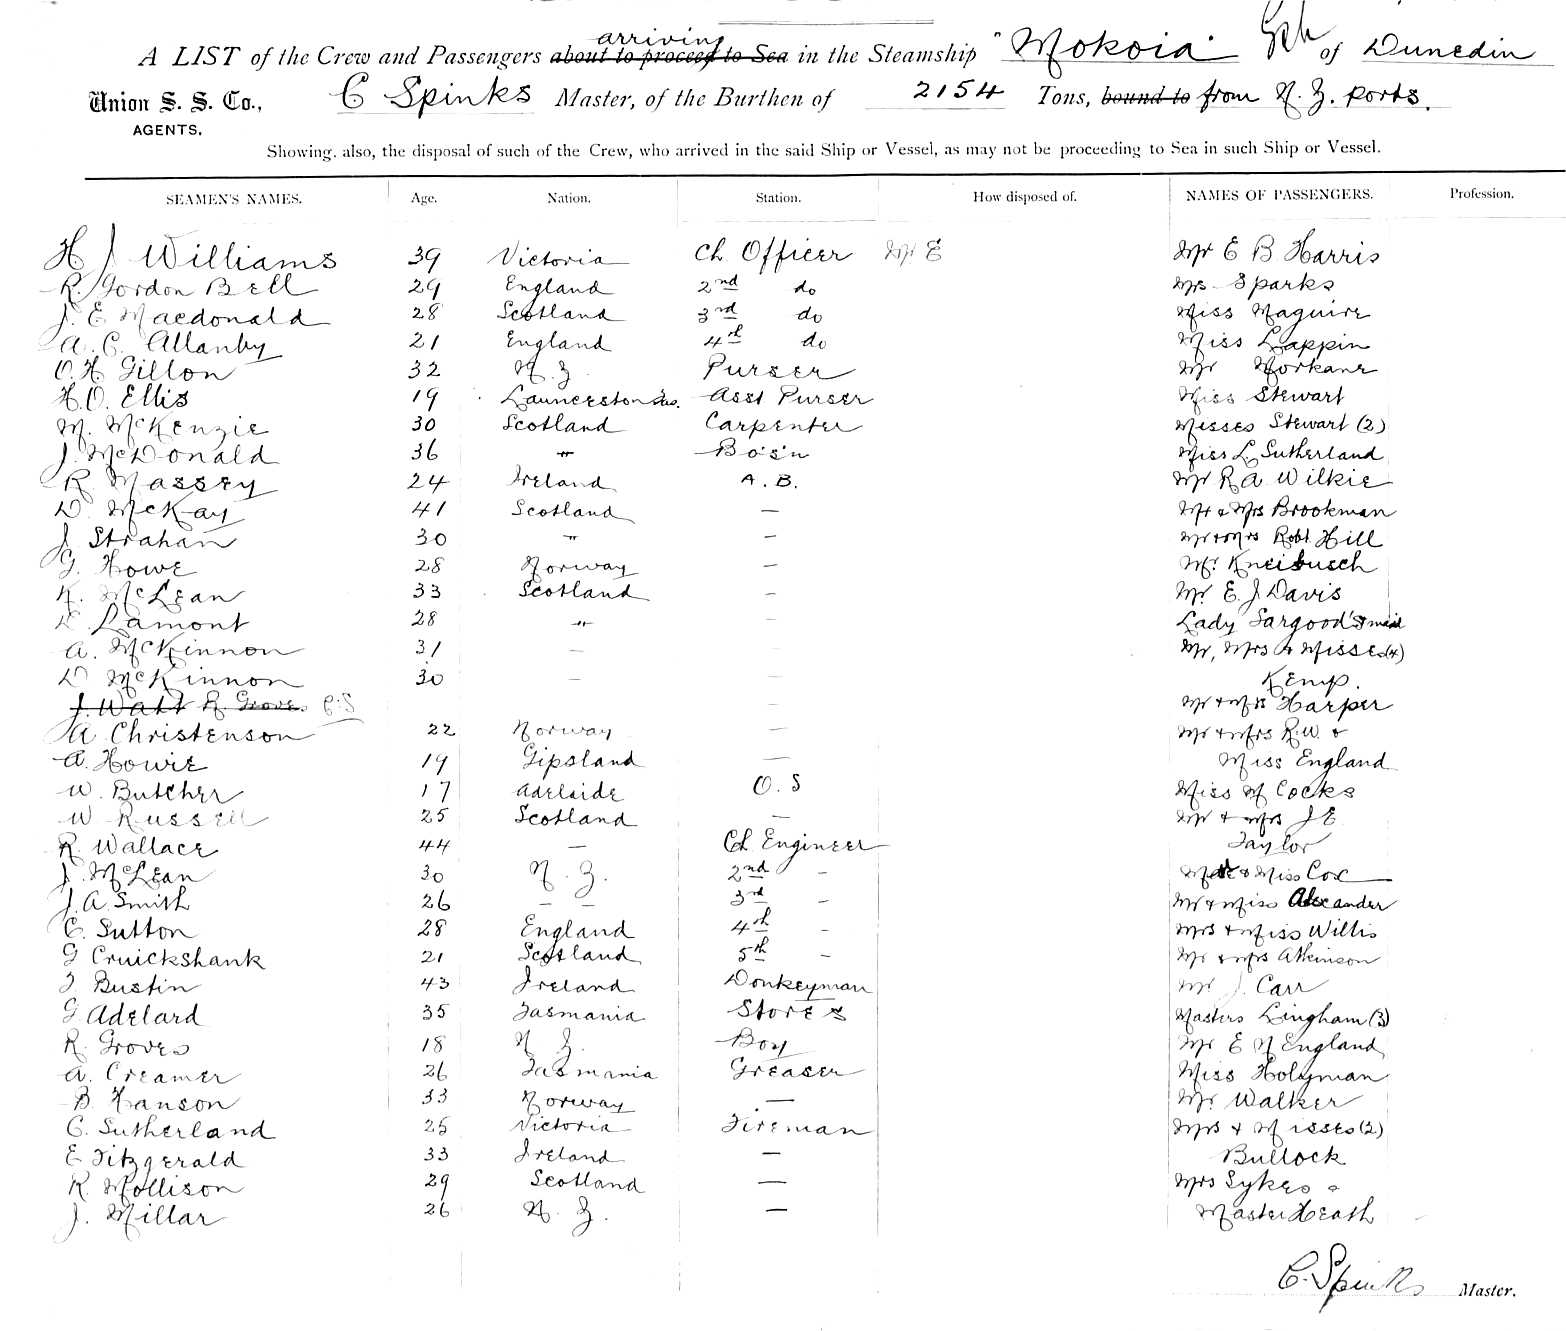 arriving
A LIST of the Crew and Passengers about to proceed to Sea in the Steamship "Mokoia" of Dunedin
Union S. S. Co., C Spinks Master, of the Burthen of 2154 Tons, bound to from N. Z. Ports.
AGENTS.
Showing, also, the disposal of such of the Crew, who arrived in the said Ship or Vessel, as may not be proceeding to Sea in such Ship or Vessel.
SEAMEN'S NAMES. Age. Nation. Station. How disposed of. NAMES OF PASSENGERS. Profession.
H J Williams 39 Victoria Ch Officer Mr E Mr E B Harris
R. Gordon Bell 29 England 2nd do Mrs Sparks
J. E Macdonald 28 Scotland 3rd do Miss Maguire
A. C. Allanby 21 England 4th do Miss Lappin
O. H Gillon 32 N. Z. Purser Mr Morkane
H. O. Ellis 19 Launceston Tas. Asst Purser Miss Stewart
M. McKenzie 30 Scotland Carpenter Misses Stewart (2)
J. McDonald 36 " Bo's'n Miss L Sutherland
R Massey 24 Ireland A. B. Mr R A Wilkie
D McKay 41 Scotland — Mr & Mrs Brookman
J Strahan 30 " — Mr & Mrs Robt Hill
G. Howe 28 Norway — Mr. Kneibusch
McLean 33 Scotland — Mr. E. J Davis
D. Lamont 28 " — Lady Sargood's maid
A. McKinnon 31 — — Mr, Mrs & Misses (4)
D McKinnon 30 — — Kemp.
J. Watt R. Groves. C. S — Mr & Mrs Harper
A Christenson 22 Norway — Mr & Mrs R. W. &
A. Howie 19 Gipsland — Miss England
W. Butcher 17 Adelaide O. S Miss M Cocks
W Russell 25 Scotland — Mr & Mrs J E
R. Wallace 44 — Ch Engineer Taylor
J. McLean 30 N. Z. 2nd - & Miss Cox
J. A Smith 26 — — 3rd - Mr & Miss Alexander
C. Sutton 28 England 4th - Mrs & Miss Willis
G Cruickshank 21 Scotland 5th - Mr & Mrs Atkinson
J Bustin 43 Ireland Donkeyman Mr J. Carr
G. Adelard 35 Tasmania Stores Masters Lingham (3)
R. Groves 18 N Z. Boy Mr E N England
A. Creamer 26 Tasmania Greaser Miss Holyman
B. Hanson 33 Norway — Mr. Walker
C. Sutherland 25 Victoria Fireman Mrs & Misses (2)
E Fitzgerald 33 Ireland — Bullock
R. Mollison 29 Scotland — Mrs Sykes &
J. Millar 26 N. Z. — Master Heath
C. Spinks Master.